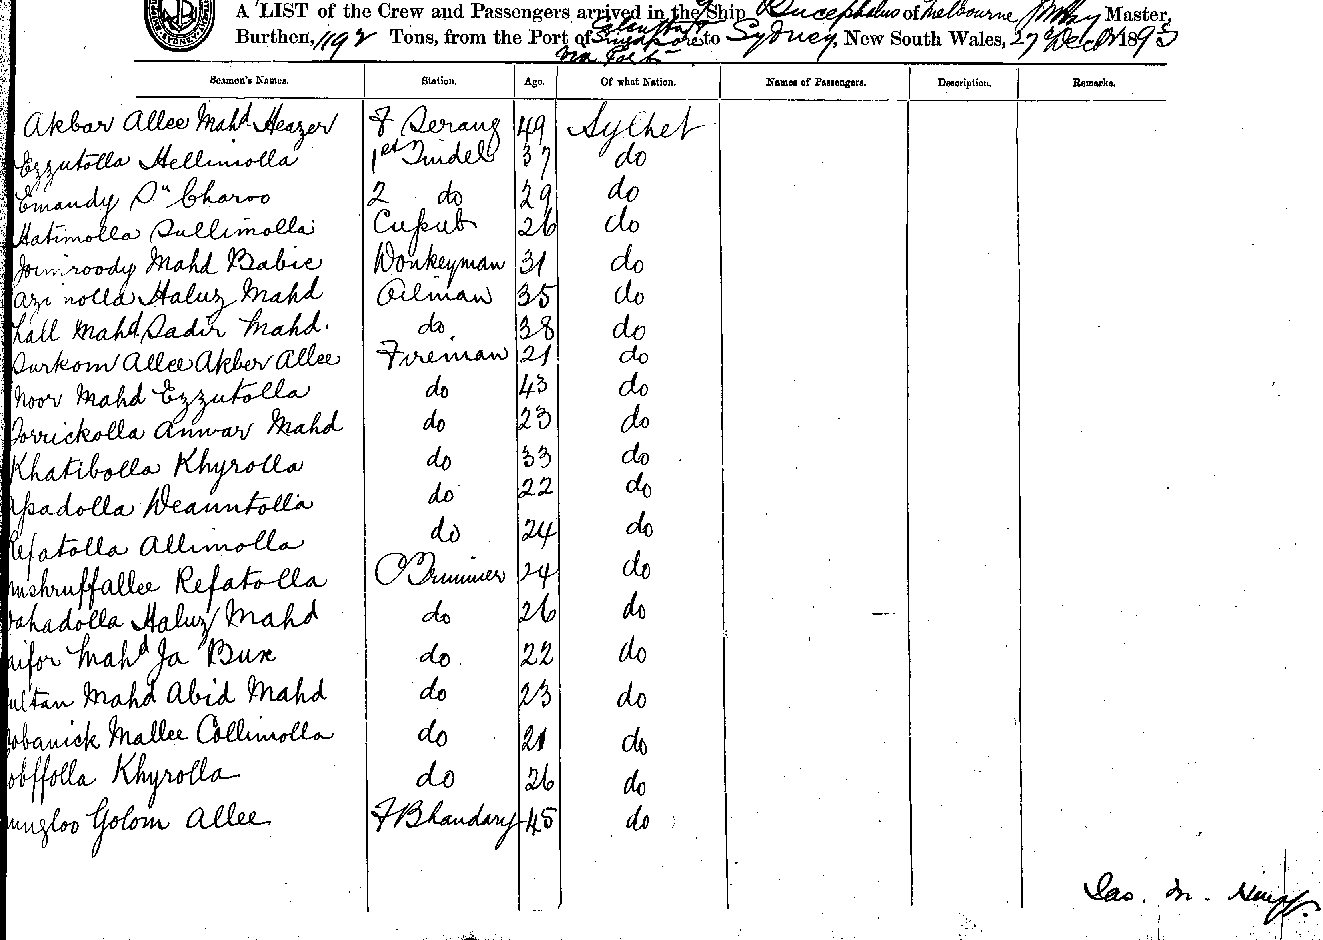 A LIST of the Crew and Passengers arrived in the Ship Bucephalus of Melbourne Master,
Burthen, 1192 Tons, from the Port of Calcutta Singapore to Sydney, New South Wales, 27 Decr 1893
via
Seamen's Names. Station. Age. Of what Nation. Names of Passengers. Description. Remarks.
Akbar Allee Mahd Heazer F Serang 49 Sylhet
Ezzutolla Hellimolla 1st Tindel 37 do
Emandy Charoo 2 do 29 do
Hatimolla Sullimolla 26 do
Joinroody Mahd Babic Donkeyman 31 do
Haluz Mahd Oilman 35 do
Mahd Sadir Mahd. do 38 do
Surkom Allee Akber Allee Fireman 21 do
Noor Mahd Ezzutolla do 43 do
Torrickolla Anwar Mahd do 23 do
Khatibolla Khyrolla do 33 do
Apsadolla do 22 do
Refatolla Allimolla do 24 do
mshruffallee Refatolla C Trimmer 24 do
ahadolla Haluz Mahd do 26 do
aifor Mahd Ja Bux do 22 do
ultan Mahd Abid Mahd do 23 do
obanick Mallee Collimolla do 21 do
obffolla Khyrolla do 26 do
ungloo Golom Allee F Bhandary 45 do
Jas. M.